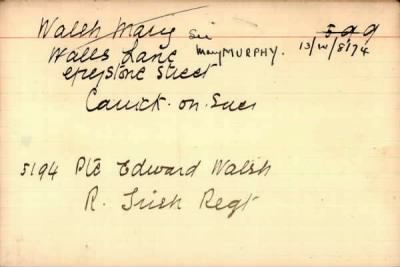 Walsh Mary See Mary MURPHY. 599
13/W/8174
Walls Lane
Greystone Street
Carrick. on. Suir
5194 Pte Edward Walsh
R. Irish Regt